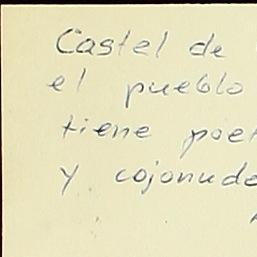 Castel de
el pueblo
tiene poet
y cojonude